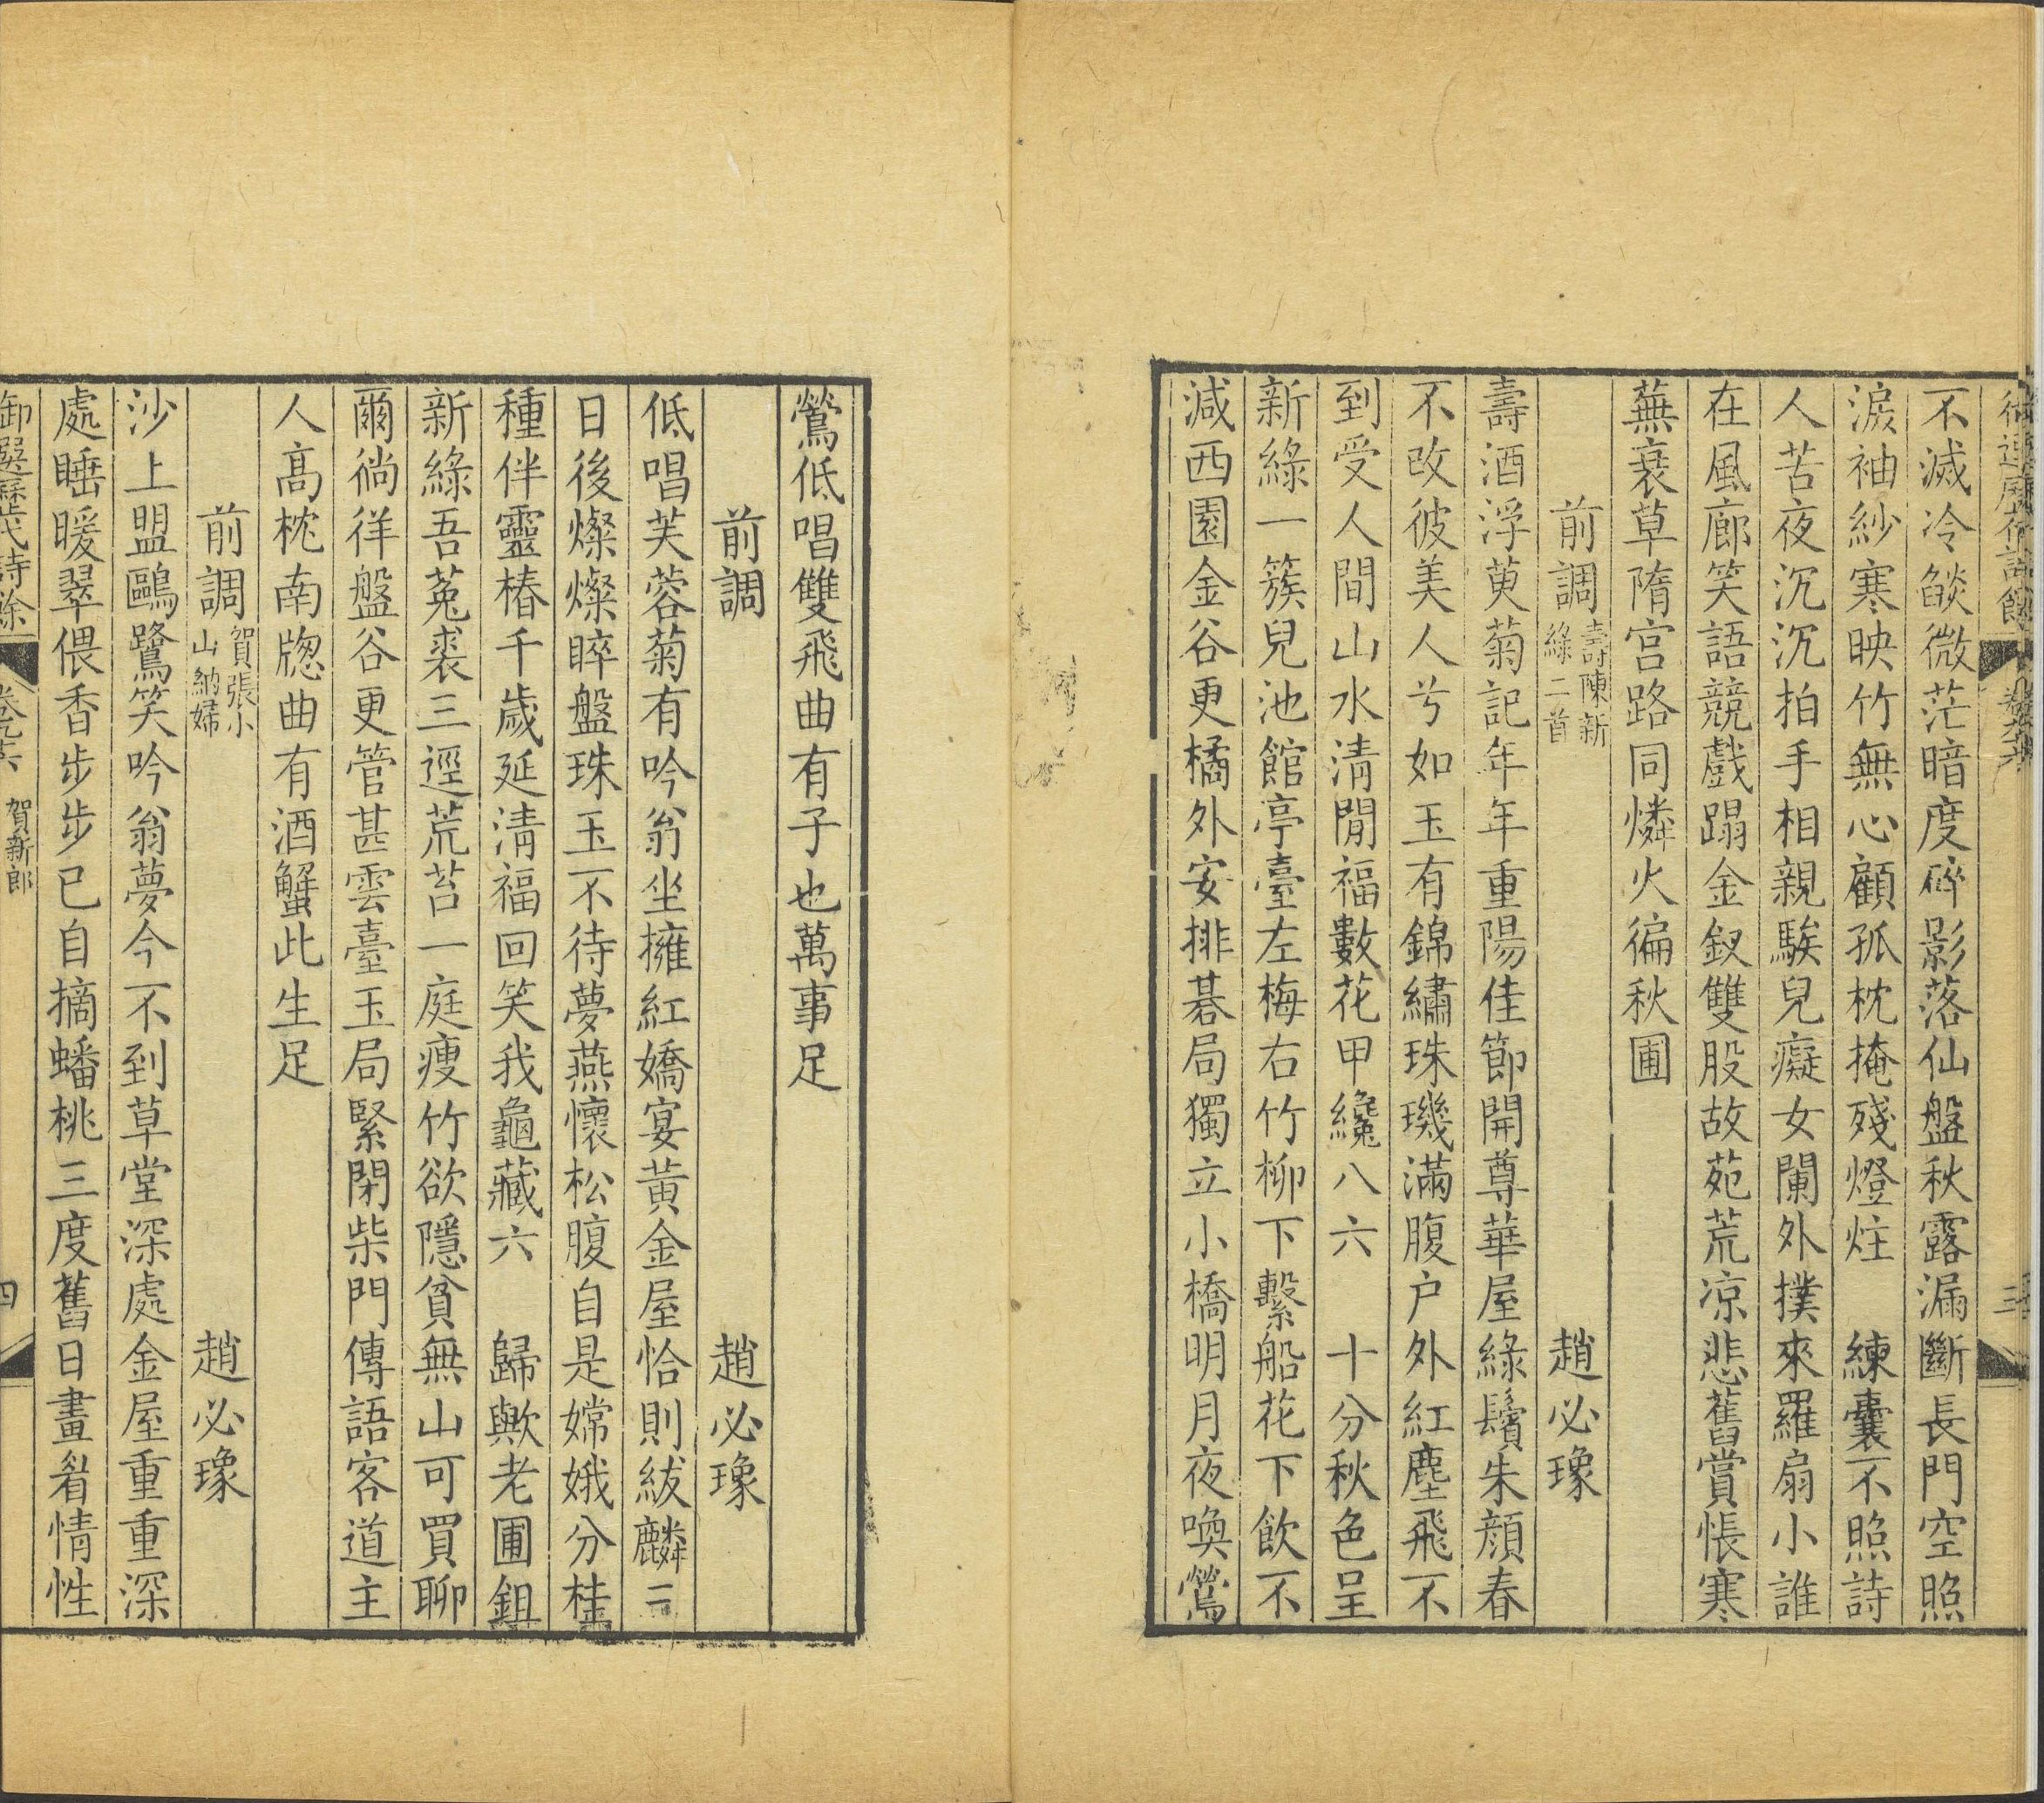 不滅冷燄微茫暗度碎影落仙盤秋露漏斷長門空照
淚袖紗寒映竹無心顧孤枕掩殘燈炷　練囊不照詩
人苦夜沉沉拍手相親騃兒癡女闌外撲來羅扇小誰
在風廊笑語競戲蹋金釵雙股故苑荒凉悲舊賞悵寒
蕪衰草隋宫路同燐火徧秋圃
前調壽陳新綠二首　趙必𤩪
壽酒浮萸菊記年年重陽佳節開尊華屋綠鬢朱顔春
不改彼美人兮如玉有錦繡珠璣滿腹户外紅塵飛不
到受人間山水清閒福數花甲纔八六　十分秋色呈
新綠一簇兒池館亭臺左梅右竹柳下繫船花下飲不
減西園金谷更橘外安排碁局獨立小橋明月夜喚鶯
鶯低唱雙飛曲有子也萬事足
前調　趙必𤩪
低唱芙蓉菊有吟翁坐擁紅嬌宴黃金屋恰則紱麟二
日後燦燦晬盤珠玉不待夢燕懷松腹自是嫦娥分桂
種伴靈椿千歲延清福回笑我龜藏六　歸歟老圃鉏
新綠吾菟裘三逕荒苔一庭瘦竹欲隱貧無山可買聊
爾徜徉盤谷更管甚雲臺玉局緊閉柴門傳語客道主
人高枕南牕曲有酒蟹此生足
前調賀張小山納婦　趙必𤩪
沙上盟鷗鷺笑吟翁夢今不到草堂深處金屋重重深
處睡暖翠偎香步步已自摘蟠桃三度舊日畫眉情性
御選歷代詩餘　賀新郎　四